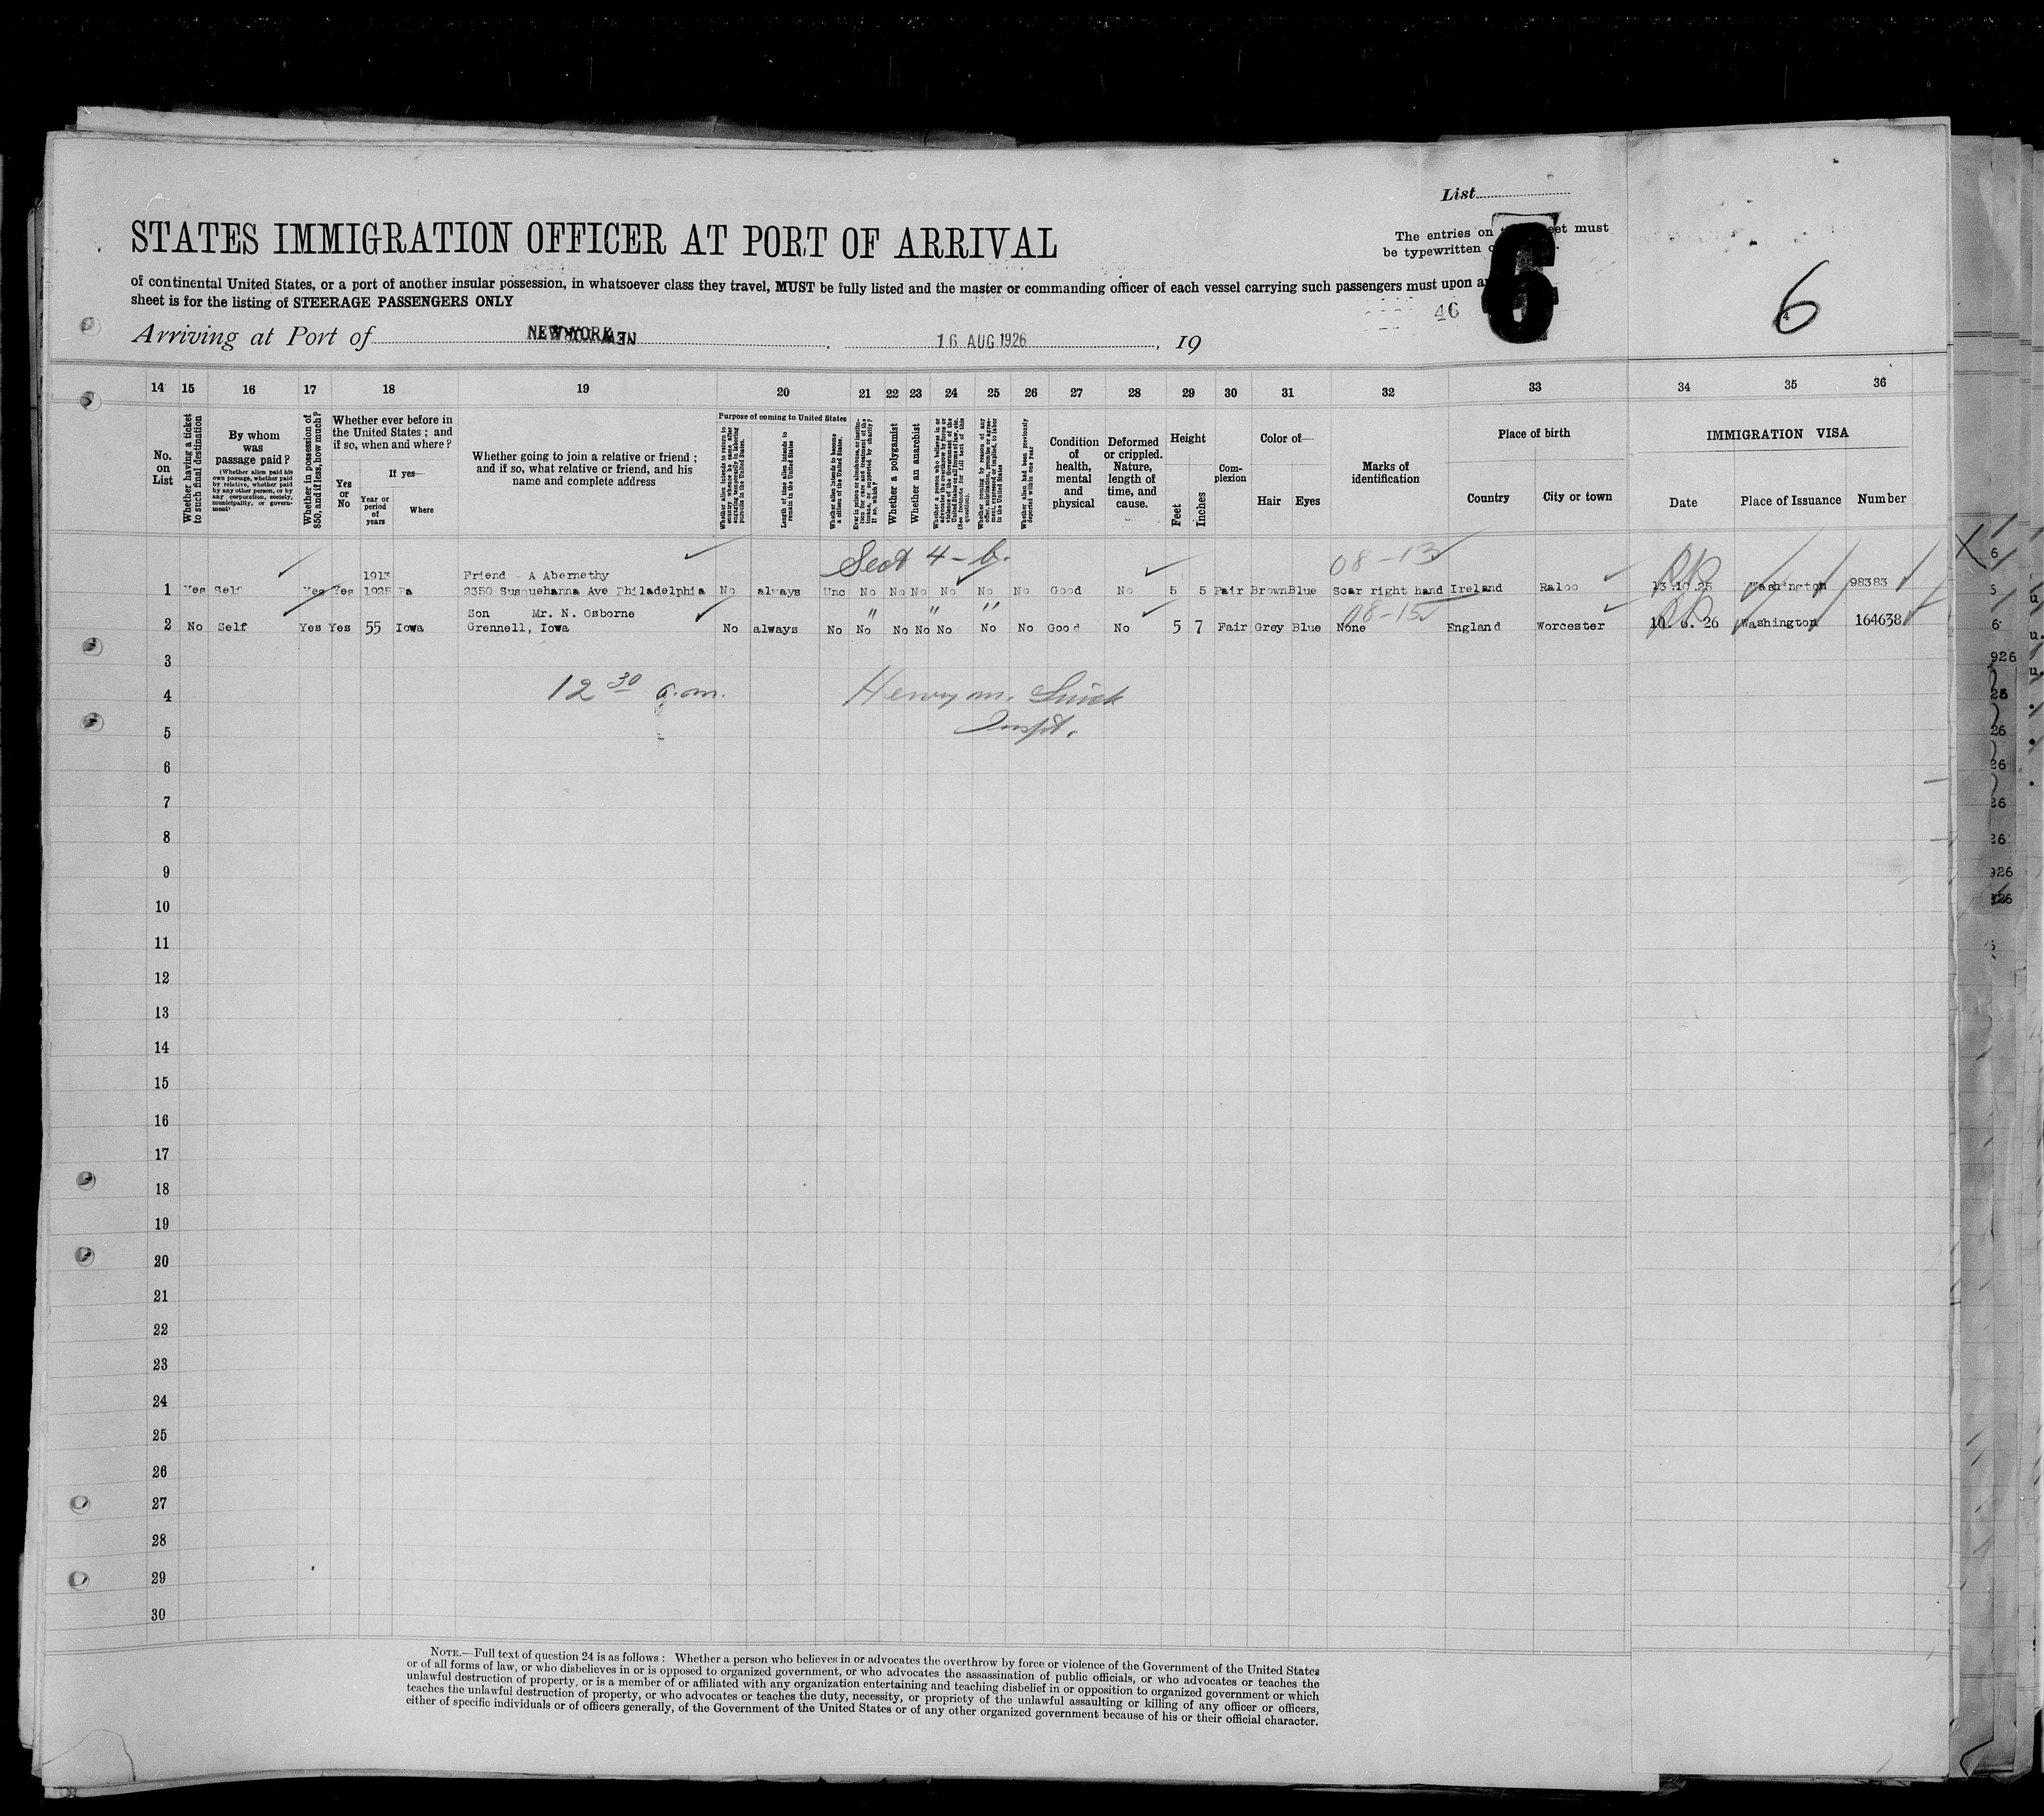 List
STATES IMMIGRATION OFFICER AT PORT OF ARRIVAL
The entries on must
be typewritten
of continental United States, or a port of another insular possession, in whatsoever class they travel, MUST be fully listed and the master or commanding officer of each vessel carrying such passengers must upon
sheet is for the listing of STEERAGE PASSENGERS ONLY
46
6
6
Arriving at Port of NEW YORK, 16 AUG 1926, 19
14 15 16 17 18 19 20 21 22 23 24 25 26 27 28 29 30 31 32 33 34 35 36
No. on List
Whether having a ticket to such final destination
By whom was passage paid?
(Whether alien paid his own passage, whether paid by relative, whether paid by any other person, or by any corporation, society, municipality, or government)
Whether in possession of $50, and if less, how much?
Whether ever before in the United States; and if so, when and where?
Yes or No
If yes—
Year or period of years
Where
Whether going to join a relative or friend; and if so, what relative or friend, and his name and complete address
Purpose of coming to United States
Whether alien intends to return to country whence he came after engaging temporarily in laboring pursuits in the United States.
Length of time alien intends to remain in the United States
Whether alien intends to become a citizen of the United States.
Ever in prison or almshouse, or institution for care and treatment of the insane, or supported by charity? If so, which?
Whether a polygamist
Whether an anarchist
Whether a person who believes in or advocates the overthrow by force or violence of the Government of the United States or all forms of law, etc. (See footnote for full text of this question).
Whether coming by reason of any offer, solicitation, promise or agreement, expressed or implied, to labor in the United States
Whether alien had been previously deported within one year
Condition of health, mental and physical
Deformed or crippled. Nature, length of time, and cause.
Height
Feet
Inches
Complexion
Color of—
Hair
Eyes
Marks of identification
Place of birth
Country
City or town
IMMIGRATION VISA
Date
Place of Issuance
Number
Sect 4-b. 08-13
1913 Friend - A Abernethy
1 Yes Self Yes Yes 1925 Pa 2350 Susquehanna Ave Philadelphia No always Unc No No No No No No Good No 5 5 Fair Brown Blue Scar right hand Ireland Raloo 13.10.25 Washington 98383
Son Mr. N. Osborne " " " 08-15
2 No Self Yes Yes 55 Iowa Grennell, Iowa No always No No No No No No No Good No 5 7 Fair Grey Blue None England Worcester 10. 6. 26 Washington 164638
3
4 12 30 a.m. Henry M.
5 Inspt.
6
7
8
9
10
11
12
13
14
15
16
17
18
19
20
21
22
23
24
25
26
27
28
29
30
NOTE.—Full text of question 24 is as follows: Whether a person who believes in or advocates the overthrow by force or violence of the Government of the United States
or of all forms of law, or who disbelieves in or is opposed to organized government, or who advocates the assassination of public officials, or who advocates or teaches the
unlawful destruction of property, or is a member of or affiliated with any organization entertaining and teaching disbelief in or opposition to organized government or which
teaches the unlawful destruction of property, or who advocates or teaches the duty, necessity, or propriety of the unlawful assaulting or killing of any officer or officers,
either of specific individuals or of officers generally, of the Government of the United States or of any other organized government because of his or their official character.